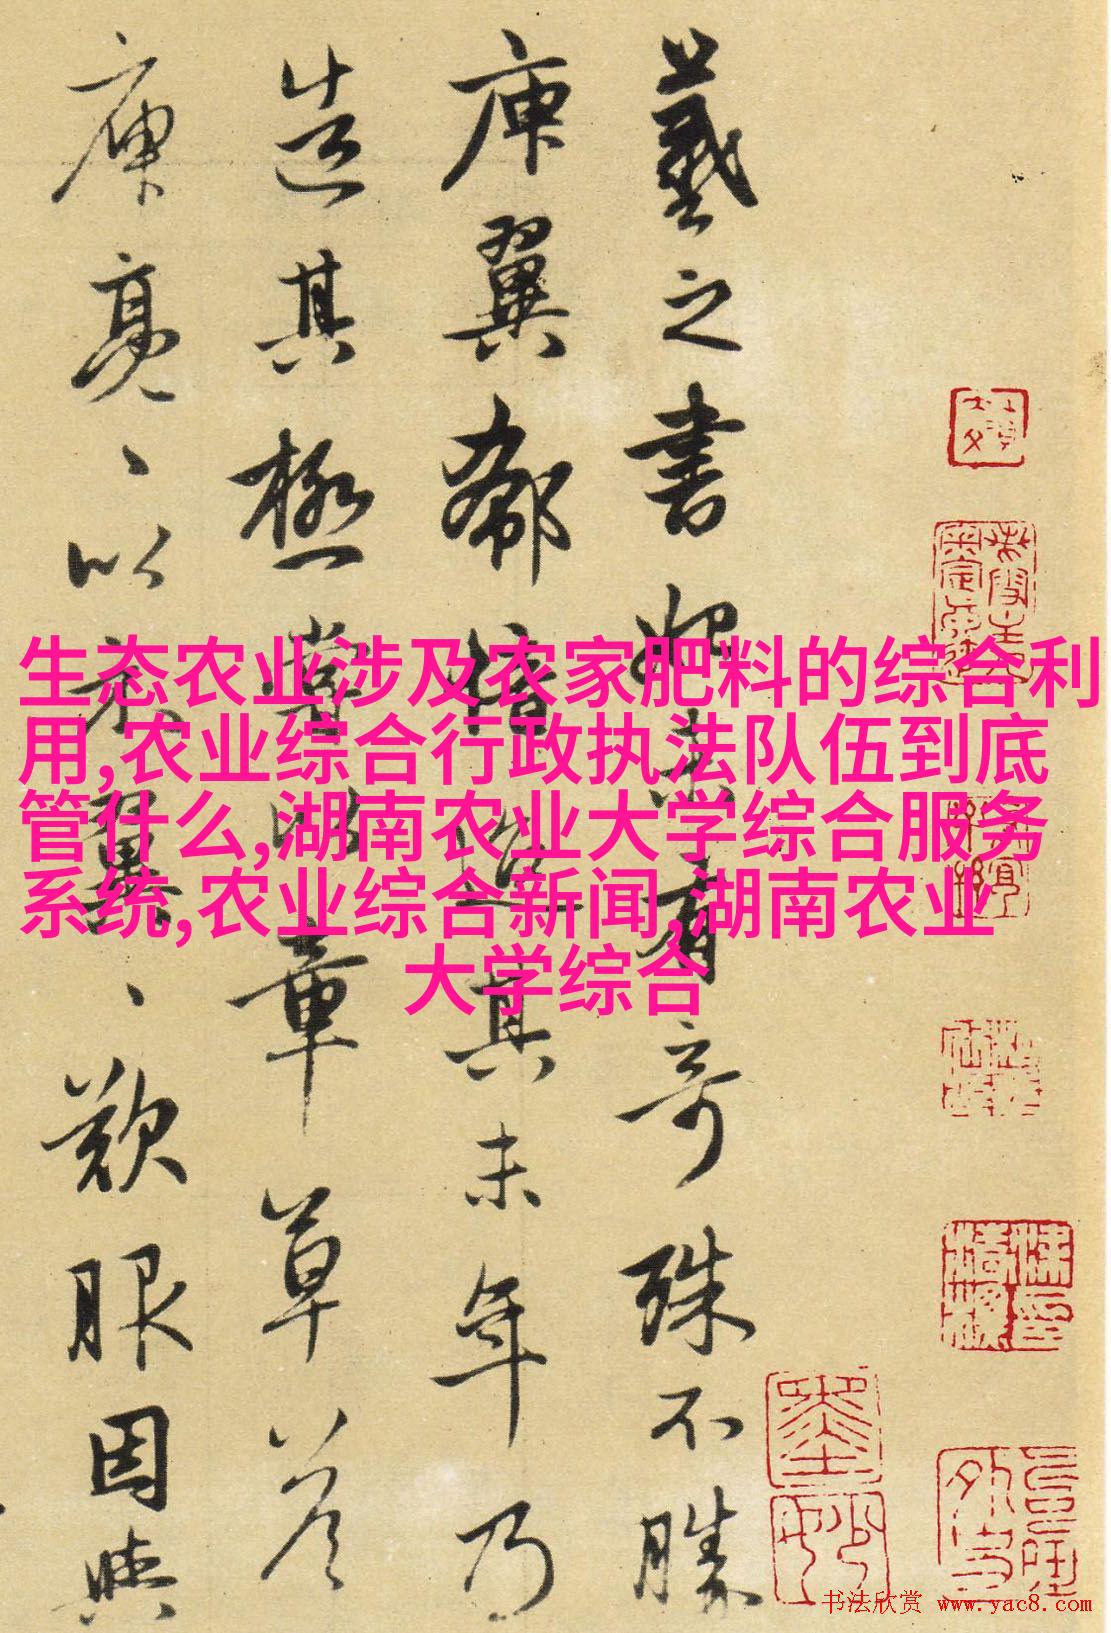 羲之書始未有奇殊不勝
庾翼郗愔迨其末年乃
造其極嘗以章草答
庾亮、以示翼、歎服因與
生态农业涉及农家肥料的综合利
用,农业综合行政执法队伍到底
管什么,湖南农业大学综合服务
系统,农业综合新闻,湖南农业
大学综合
书法欣赏 www.yac8.com